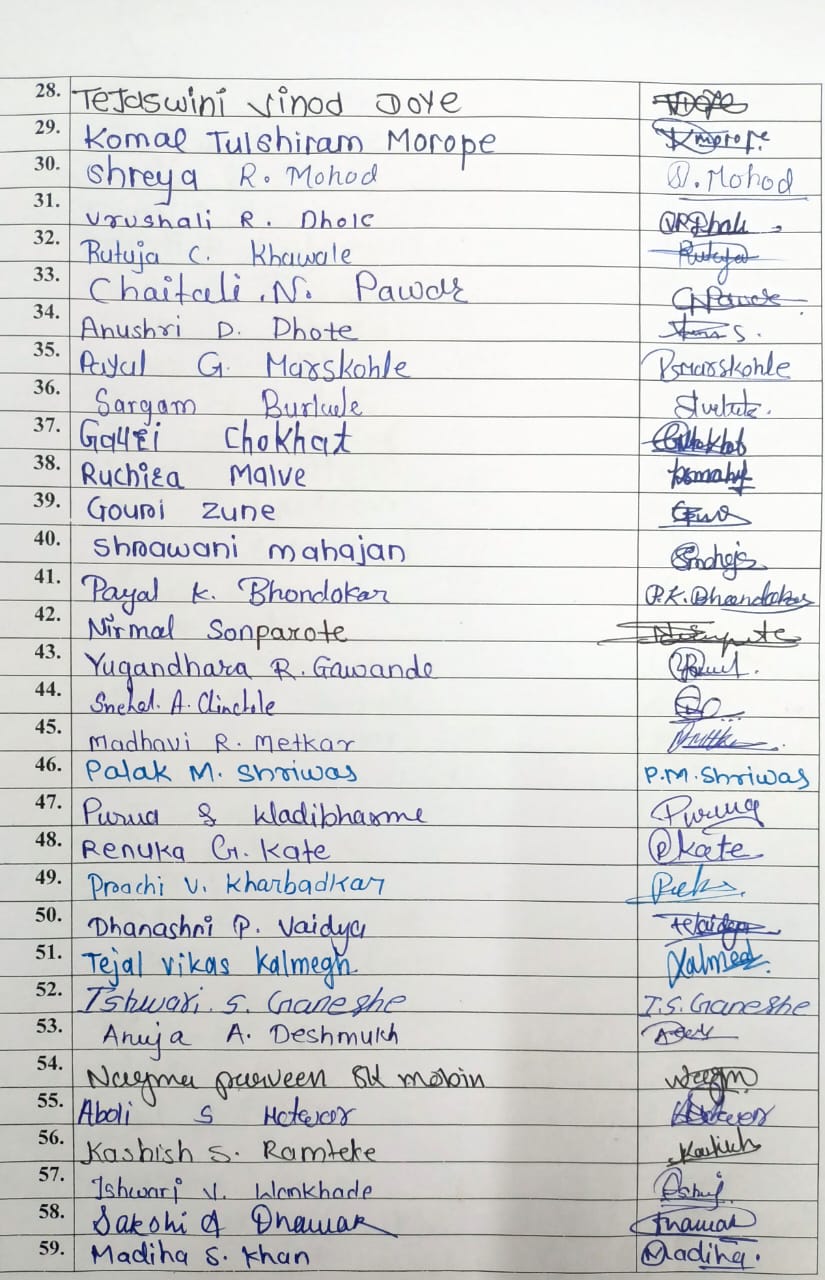 28. Tejaswini Vinod Doye
29. Komal Tulshiram Morope Kmorope.
30. Shreya R. Mohod S. Mohod
31. Vrushali R. Dhole VRDhole
32. Rutuja C. Khawale Rutuja
33. Chaitali .N. Pawar CNPawar
34. Anushri D. Dhote
35. Payal G. Marskohle PGMarskohle
36. Sargam
37. Gauri Chokhat
38. Ruchira Malve
39. Gouri Zune
40. Shrawani mahajan
41. Payal K. Bhondokar P.K.Bhondokar
42. Nirmal Sonparote
43. Yugandhara R. Gawande
44. Snehal. A.
45. Madhavi R. Metkar
46. Palak M. Shriwas P.M.Shriwas
47. Purva S Purva
48. Renuka G. Kate Rkate
49. Prachi V. Kharbadkar
50. Dhanashri P. Vaidya
51. Tejal Vikas Kalmegh
52. Ishwari. S. Ganeshe I.S.Ganeshe
53. Anuja A. Deshmukh
54. Nagma parveen Sk mobin
55. Aboli S
56. Kashish S. Ramteke Kashish
57. Ishwari V. Wankhade
58. Sakshi Dhawar
59. Madiha S. Khan Madiha.